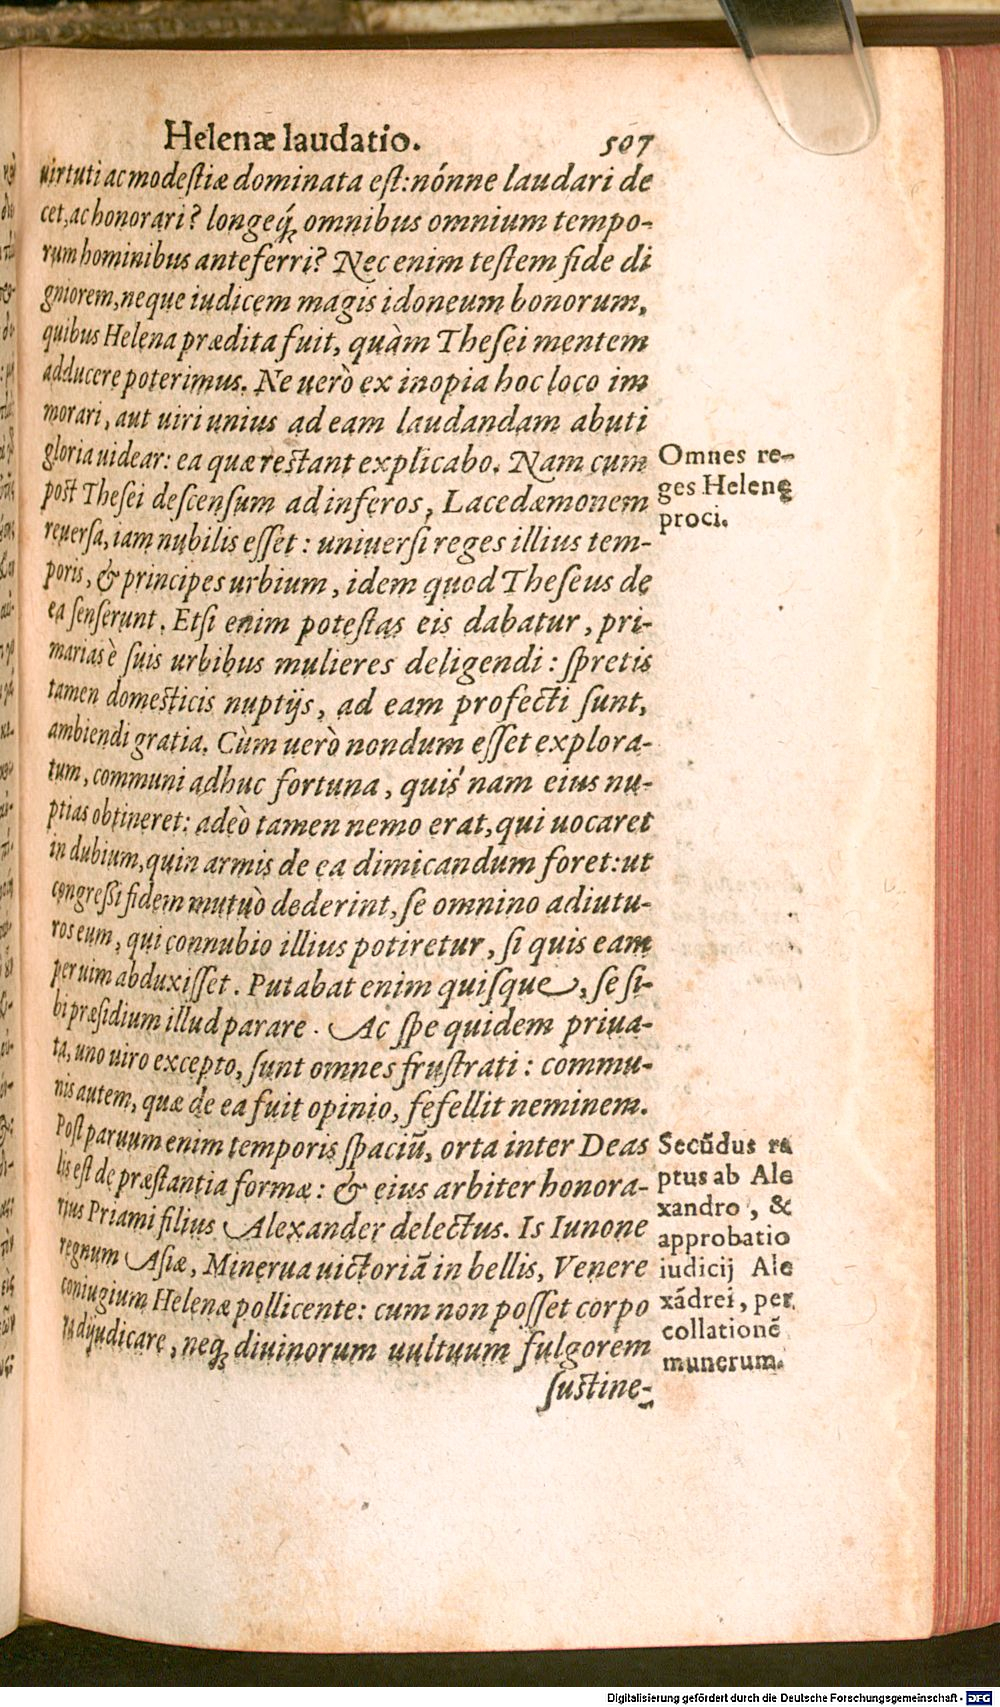 Helenæ laudatio. 507
uirtuti ac modestiæ dominata est: nónne laudari de
cet, ac honorari? longeq́; omnibus omnium tempo-
rum hominibus anteferri? Nec enim testem fide di
gniorem, neque iudicem magis idoneum bonorum,
quibus Helena prædita fuit, quàm Thesei mentem
adducere poterimus. Ne uerò ex inopia hoc loco im
morari, aut uiri unius ad eam laudandam abuti
gloria uidear: ea quæ restant explicabo. Nam cum
post Thesei descensum ad inferos, Lacedæmonem
reuersa, iam nubilis esset: uniuersi reges illius tem-
poris, & principes urbium, idem quod Theseus de
ea senserunt. Etsi enim potestas eis dabatur, pri-
marias è suis urbibus mulieres deligendi: spretis
tamen domesticis nuptijs, ad eam profecti sunt,
ambiendi gratia. Cùm uerò nondum esset explora-
tum, communi adhuc fortuna, quis'nam eius nu-
ptias obtineret: adeò tamen nemo erat, qui uocaret
in dubium, quin armis de ea dimicandum foret: ut
congressi fidem mutuò dederint, se omnino adiutu-
ros eum, qui connubio illius potiretur, si quis eam
per uim abduxisset. Putabat enim quisque, se si-
bi præsidium illud parare. Ac spe quidem priua-
ta, uno uiro excepto, sunt omnes frustrati: commu-
nis autem, quæ de ea fuit opinio, fefellit neminem.
Post paruum enim temporis spaciũ, orta inter Deas
lis est de præstantia formæ: & eius arbiter honora-
rius Priami filius Alexander delectus. Is Iunone
regnum Asiæ, Minerua uictoriã in bellis, Venere
coniugium Helenæ pollicente: cum non posset corpo
ra dijudicare, neq; diuinorum uultuum fulgorem
sustine-
Omnes re-
ges Helenę
proci.
Secũdus ra
ptus ab Ale
xandro, &
approbatio
iudicij Ale
xãdrei, per
collationẽ
munerum.
Digitalisierung gefördert durch die Deutsche Forschungsgemeinschaft - DFG